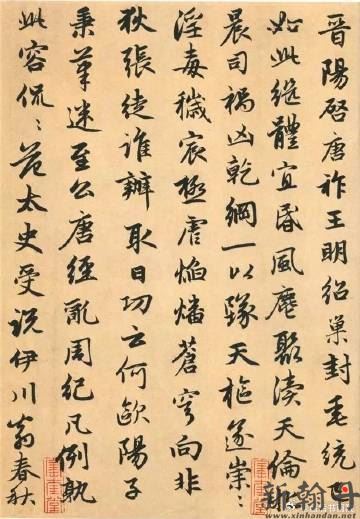 晉陽啓唐祚王明紹巢封垂統已
如此繼體宜昏風麀聚瀆天倫牝
晨司禍凶乾綱一以隊天樞遂崇〻
淫毒穢宸極虐焰燔蒼穹向非
狄張徒誰辦取日功云何歐陽子
秉筆迷至公唐經亂周紀凡例孰
此容侃〻范太史受說伊川翁春秋
新翰丹
www.xinhandan.net